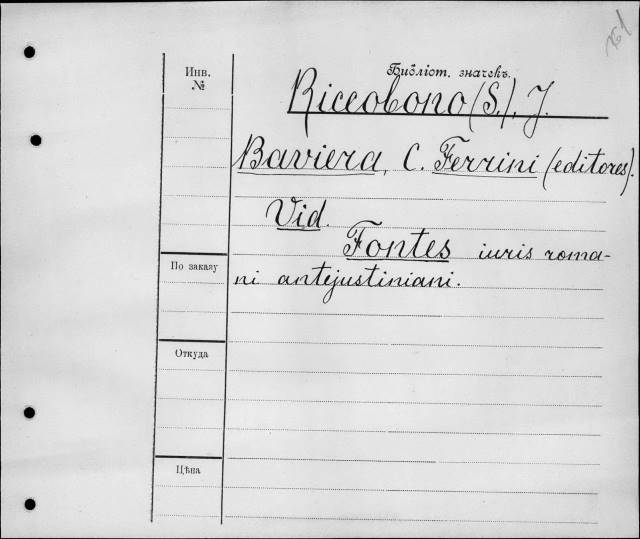 Инв.
№
Библіот. значекъ.
Riccobono (S.), J.
Baviera, C. Ferrini (editores).
Vid.
Fontes iuris roma-
ni antejustiniani.
По заказу
Откуда
Цѣна